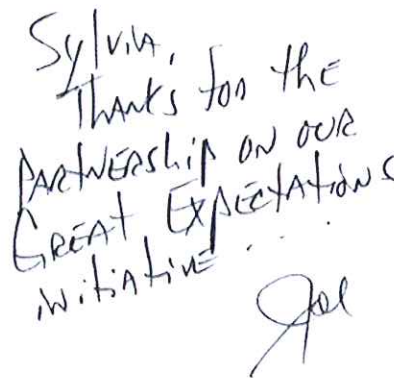 Sylvia,
Thanks for the
PARTNERSHIP ON OUR
GREAT EXPECTATIONS
initiative ...
Joe